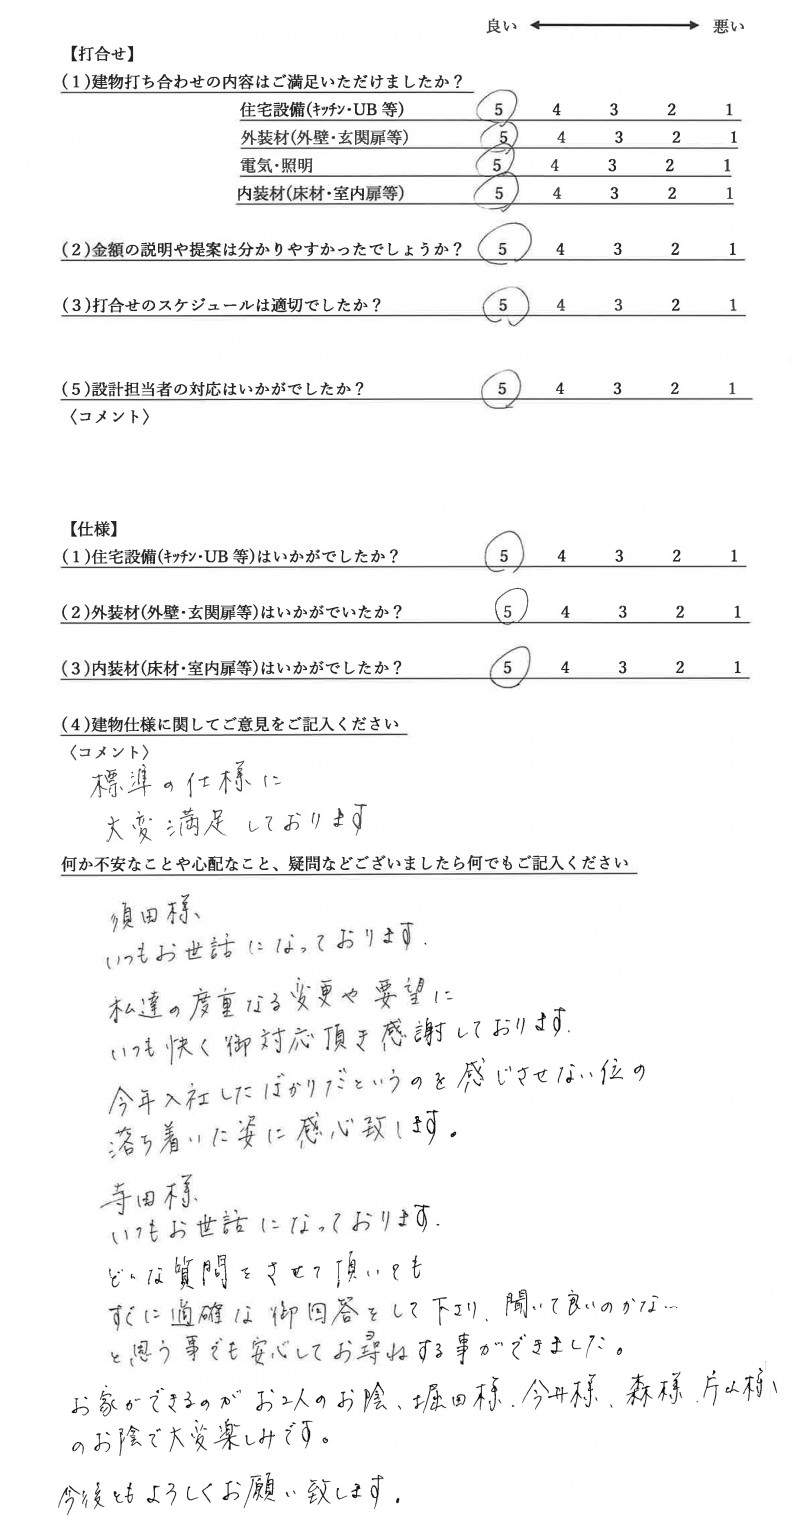 良い 悪い
【打合せ】
(1)建物打ち合わせの内容はご満足いただけましたか？
住宅設備(ｷｯﾁﾝ・UB 等) 5 4 3 2 1
外装材(外壁・玄関扉等) 5 4 3 2 1
電気・照明 5 4 3 2 1
内装材(床材・室内扉等) 5 4 3 2 1
(2)金額の説明や提案は分かりやすかったでしょうか？ 5 4 3 2 1
(3)打合せのスケジュールは適切でしたか？ 5 4 3 2 1
(5)設計担当者の対応はいかがでしたか？ 5 4 3 2 1
〈コメント〉
【仕様】
(1)住宅設備(ｷｯﾁﾝ・UB 等)はいかがでしたか？ 5 4 3 2 1
(2)外装材(外壁・玄関扉等)はいかがでいたか？ 5 4 3 2 1
(3)内装材(床材・室内扉等)はいかがでしたか？ 5 4 3 2 1
(4)建物仕様に関してご意見をご記入ください
〈コメント〉
標準の仕様に
大変満足しております
何か不安なことや心配なこと、疑問などございましたら何でもご記入ください
須田様、
いつもお世話になっております.
私達の度重なる変更や要望に
いつも快く御対応頂き感謝しております.
今年入社したばかりだというのを感じさせない位の
落ち着いた姿に感心致します。
寺田様
いつもお世話になっております.
どんな質問をさせて頂いても
すぐに適確な御回答をして下さり、聞いて良いのかな…
と思う事でも安心してお尋ねする事ができました。
お家ができるのがお2人のお陰、堀田様、今井様、森様、片山様、
のお陰で大変楽しみです。
今後ともよろしくお願い致します。